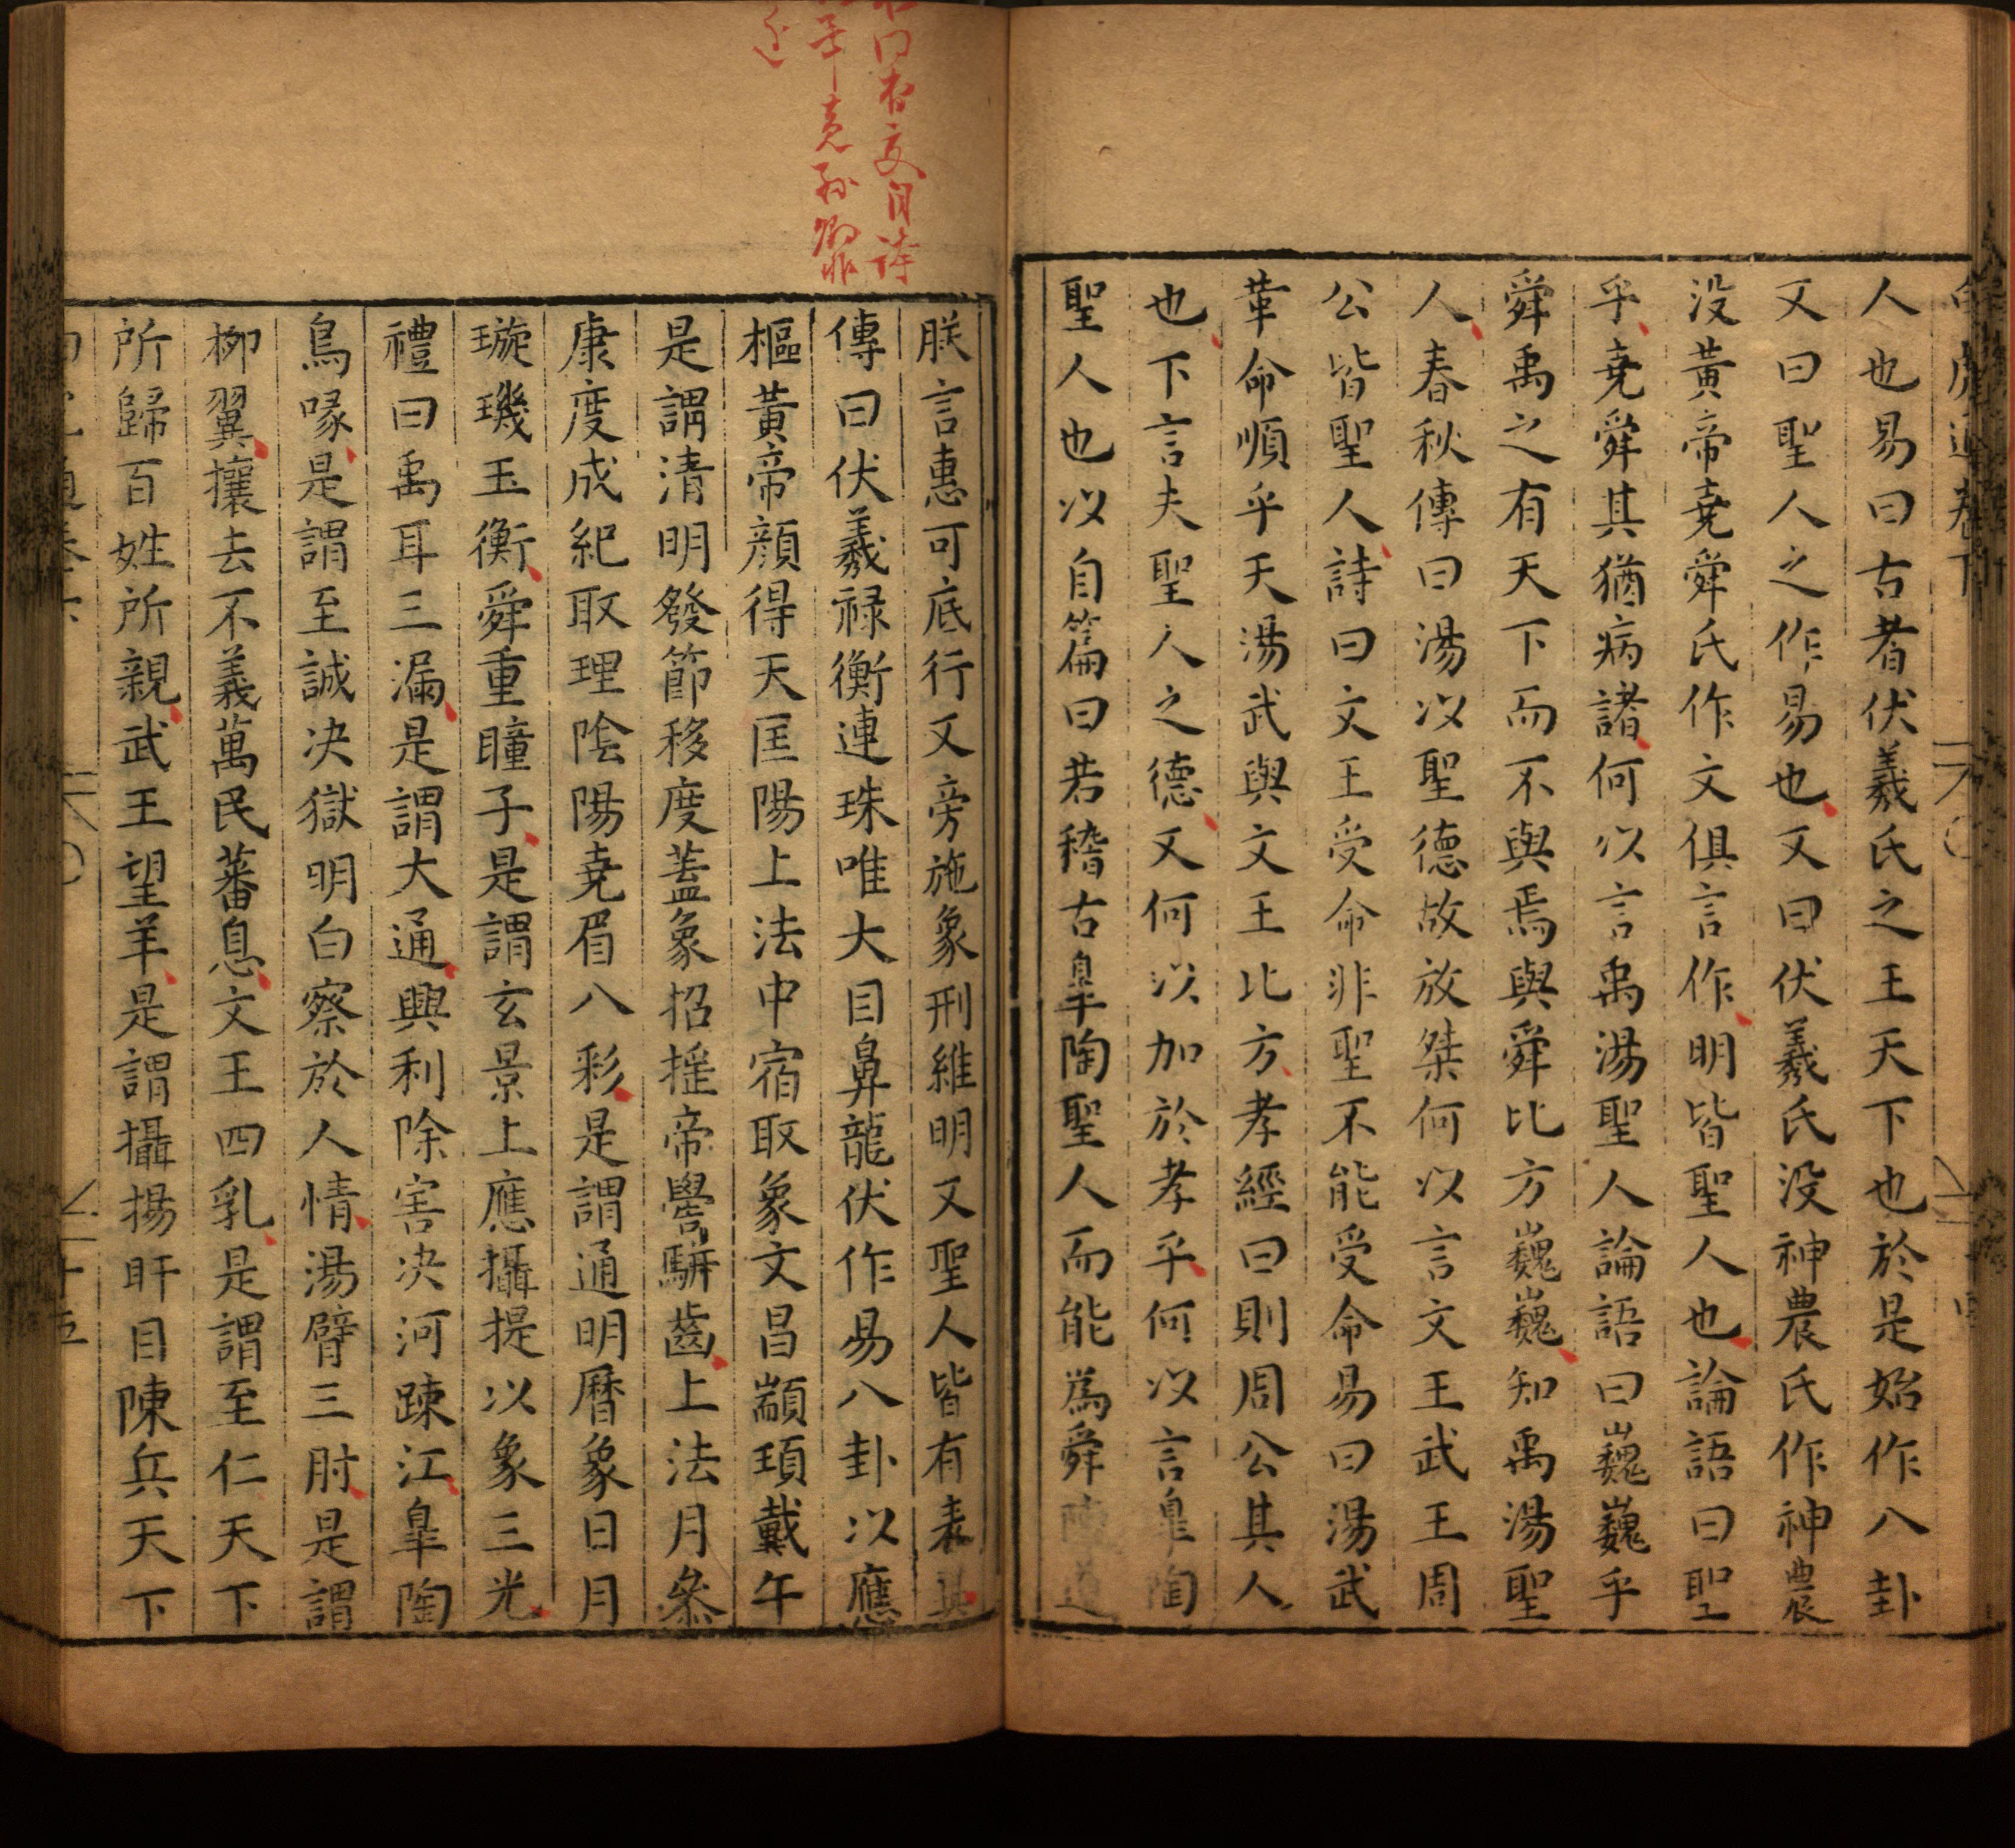 白虎通卷下
人也易曰古者伏羲氏之王天下也於是始作八卦
又曰聖人之作易也又曰伏羲氏没神農氏作神農
没黃帝堯舜氏作文俱言作明皆聖人也論語曰聖
乎堯舜其猶病諸何以言禹湯聖人論語曰巍巍乎
舜禹之有天下而不與焉與舜比方巍巍知禹湯聖
人春秋傳曰湯以聖德故放桀何以言文王武王周
公皆聖人詩曰文王受命非聖不能受命易曰湯武
革命順乎天湯武與文王比方孝經曰則周公其人
也下言夫聖人之德又何以加於孝乎何以言臯陶
聖人也以自篇曰若稽古臯陶聖人而能為舜陳道
朕言惠可底行又旁施象刑維明又聖人皆有表異
傳曰伏羲祿衡連珠唯大目鼻龍伏作易八卦以應
樞黃帝顔得天匡陽上法中宿取象文昌顓頊戴午
是謂清明發節移度蓋象招揺帝嚳騈齒上法月叅
康度成紀取理陰陽堯眉八彩是謂通明曆象日月
璇璣玉衡舜重瞳子是謂玄景上應攝提以象三光
禮曰禹耳三漏是謂大通興利除害决河踈江臯陶
鳥喙是謂至誠决獄明白察於人情湯臂三肘是謂
柳翼攘去不義萬民蕃息文王四乳是謂至仁天下
所歸百姓所親武王望羊是謂攝揚盱目陳兵天下